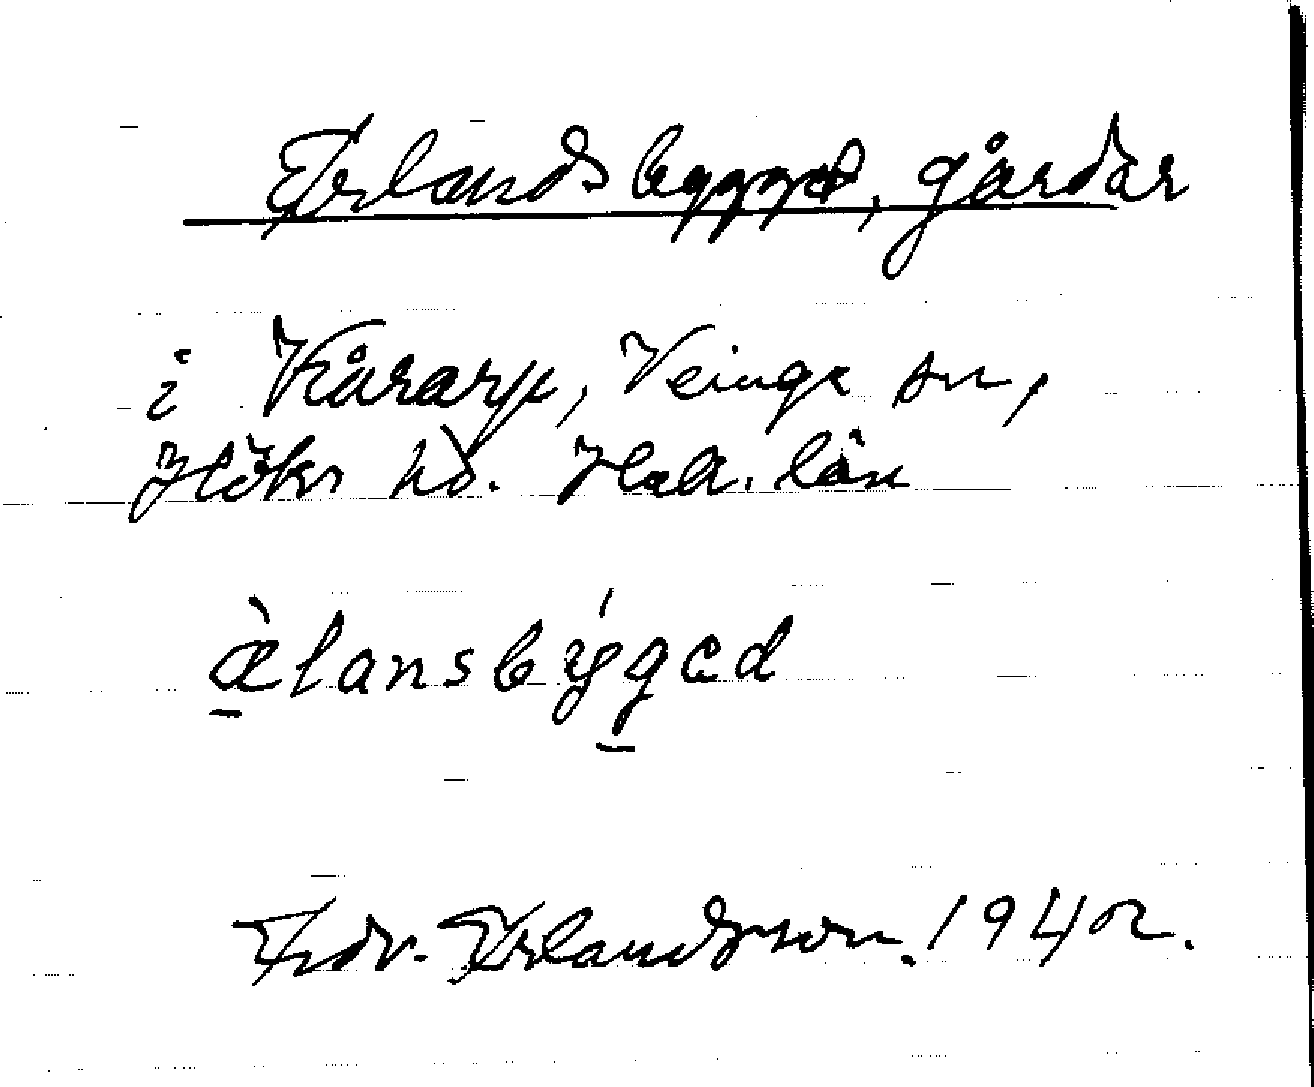 Erlandsbygget, gårdar
i Kårarp, Veinge sn,
Höks hd. Hall. län
æ̀lansbýgəd
Fr. Erlandsson. 1942.